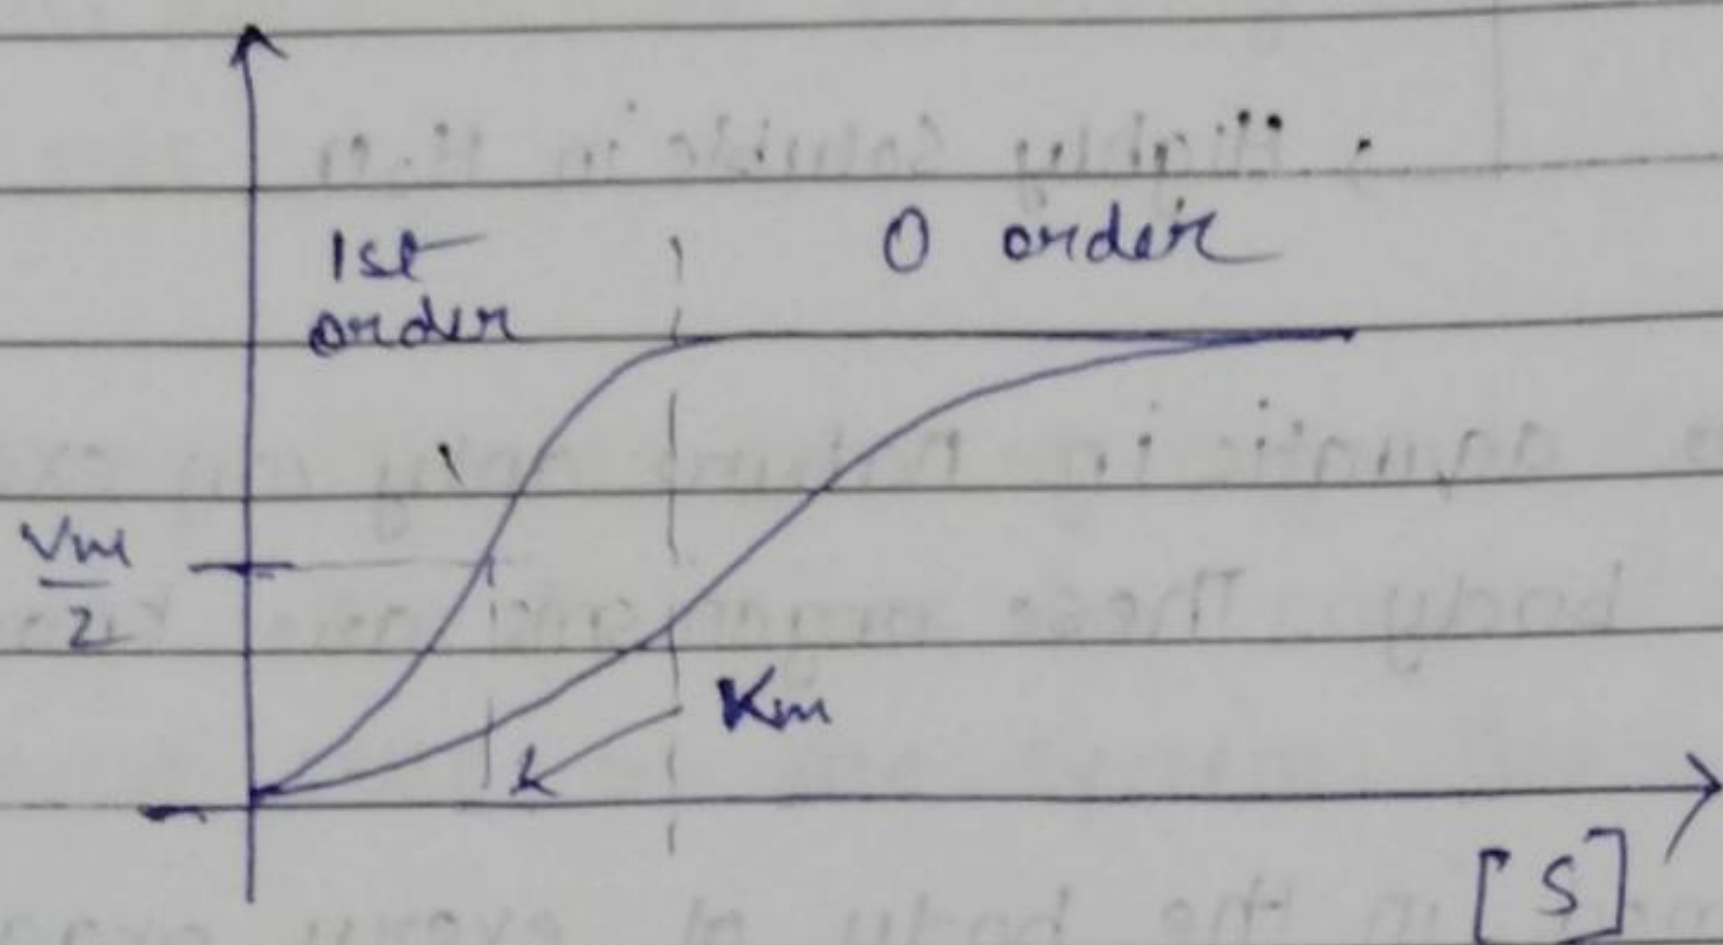 1st
order
0 order
Vm
2
Km
[S]